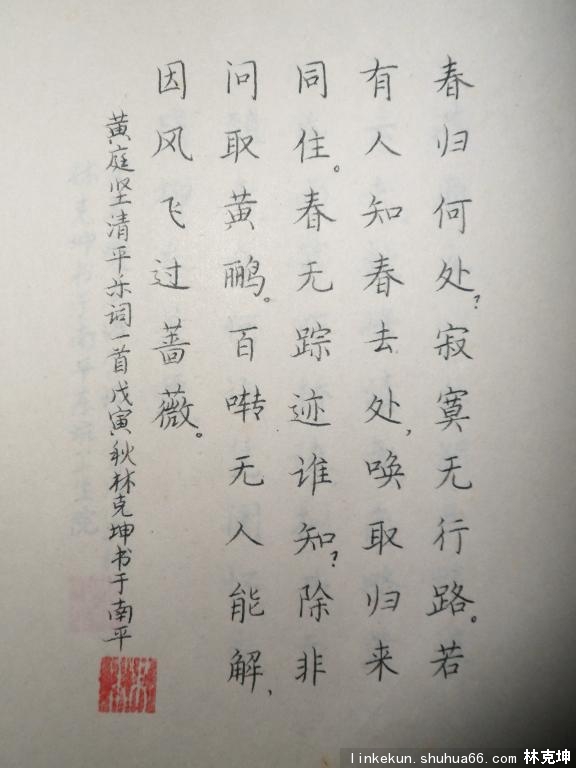 春归何处?寂寞无行路。若
有人知春去处,唤取归来
同住。春无踪迹谁知?除非
问取黄鹂。百啭无人能解,
因风飞过蔷薇。
黄庭坚清平乐词一首戊寅秋林克坤书于南平
linkekun.shuhua66.com 林克坤